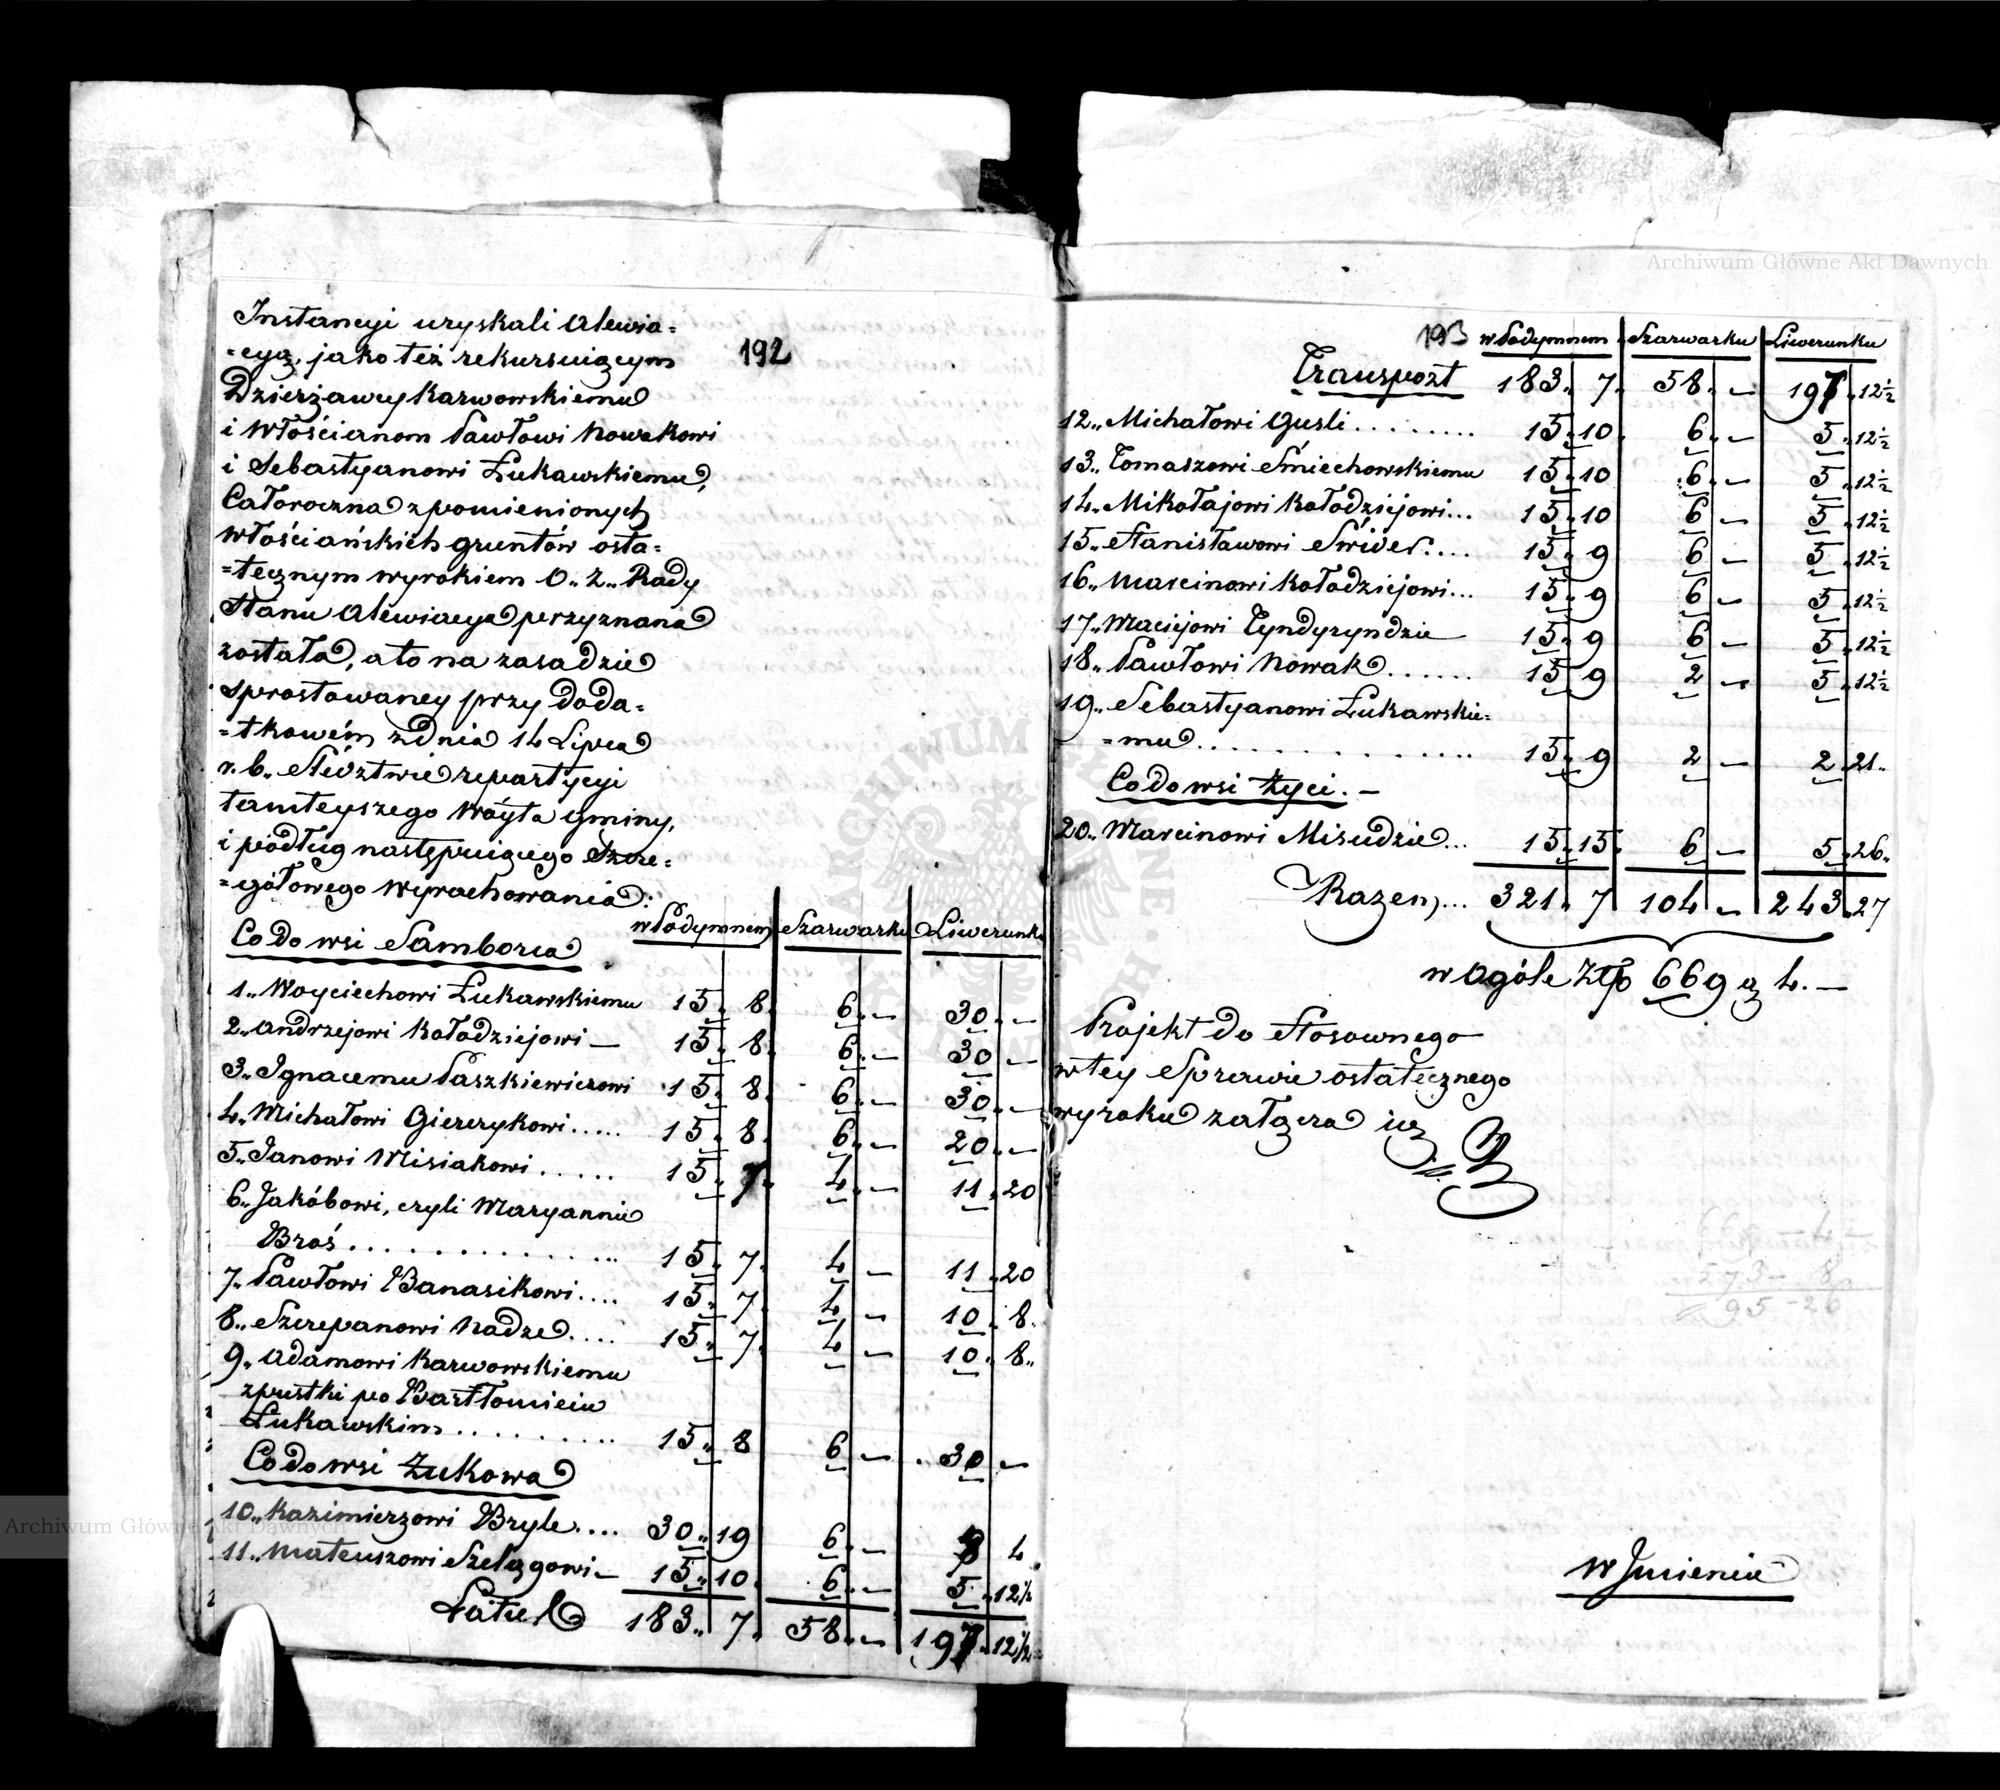 Instancyi uzyskali Alewia=
=cyą, jako też rekursuiącym
Dzierżawcy Karwowskiemu
i Włościanom Pawłowi Nowakowi
i Sebastyanowi Łukawskiemu,
Całoroczna z pomienionych
włościańskich gruntów osta=
=tecznym wyrokiem O. Z. Rady
Stanu Alewiacya przyznana
została, a to na zasadzie
sprostowaney przy doda=
=tkowém z dnia 14 Lipca
r. b. Śledztwie repartycyi
tamteyszego Wóyta Gminy,
i podług następuiącego Szcze=
=gółowego Wyrachowania:
192
w Podymnem Szarwarku Liwerunku
Co do wsi Samborza
1. Woyciechowi Łukawskiemu 15. 8. 6. — 30. —
2. Andrzejowi Kołodziejowi — 15. 8. 6. — 30 —
3. Ignacemu Paszkiewiczowi 15. 8. 6. — 30. —
4. Michałowi Gierczykowi..... 15. 8. 6. — 20. —
5. Janowi Misiakowi...... 15. 7. 4. — 11. 20
6. Jakóbowi, czyli Maryannie
Broś............... 15. 7. 4 — 11. 20
7. Pawłowi Banasikowi.... 15. 7. 4. — 10. 8.
8. Szczepanowi Nadze.... 15. 7. 4 — 10. 8.
9. Adamowi Karwowskiemu
z pustki po Bartłomieiu
Łukawskim.......... 15. 8 6 — 30 —
Co do wsi Żukowa
10. Kazimierzowi Bryle.... 30. 19 6. — 8 4.
11. Mateuszowi Szelągowi — 15. 10. 6. — 5. 12½
Latus 183. 7. 58. — 197. 12½
193
w Podymnem Szarwarku Liwerunku
Transport 183. 7. 58. — 197. 12½
12. Michałowi Gusli........ 15. 10. 6. — 5. 12½
13. Tomaszowi Śmiechowskiemu 15. 10 6. — 5. 12½
14. Mikołajowi Kołodziejowi... 15. 10 6 — 5. 12½
15. Stanisławowi Świder.... 15. 9 6 — 5. 12½
16. Marcinowi Kołodziejowi... 15. 9 6 — 5. 12½
17. Maciejowi Tyndyryndzie 15. 9 6 — 5. 12½
18. Pawłowi Nowak...... 15. 9 2 — 5. 12½
19. Sebastyanowi Łukawskie=
=mu............... 15. 9 2 — 2. 21.
Co do wsi Życi. —
20. Marcinowi Misudzie... 15. 15. 6 — 5. 26.
Razem... 321. 7 104 — 243. 27
w Ogóle Złp 669 g 4. —
Projekt do stosownego
w tey Sprawie ostatecznego
wyroku załącza się
669 — 4
573 — 8
95 — 26
W Jmieniu
Archiwum Główne Akt Dawnych
Archiwum Główne Akt Dawnych